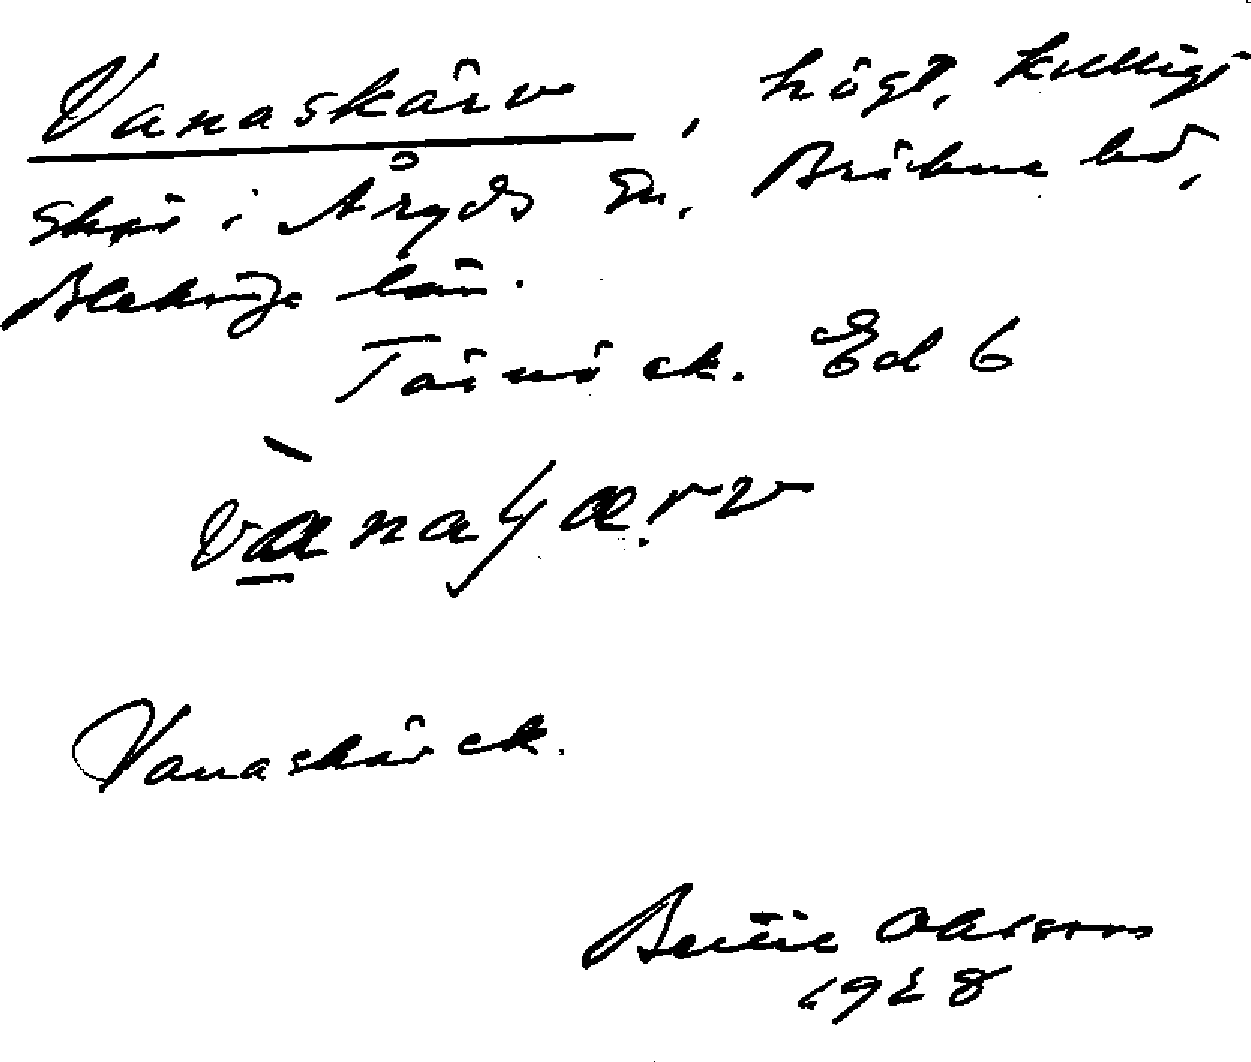 Vanaskärv, högt, kulligt
skär i Åryds sn, Bräkne hd,
Blekinge län.
Tärnö ek. Ed 6
vànaʃærv
Vanaskär ek.
Bertil Ohlsson
1928